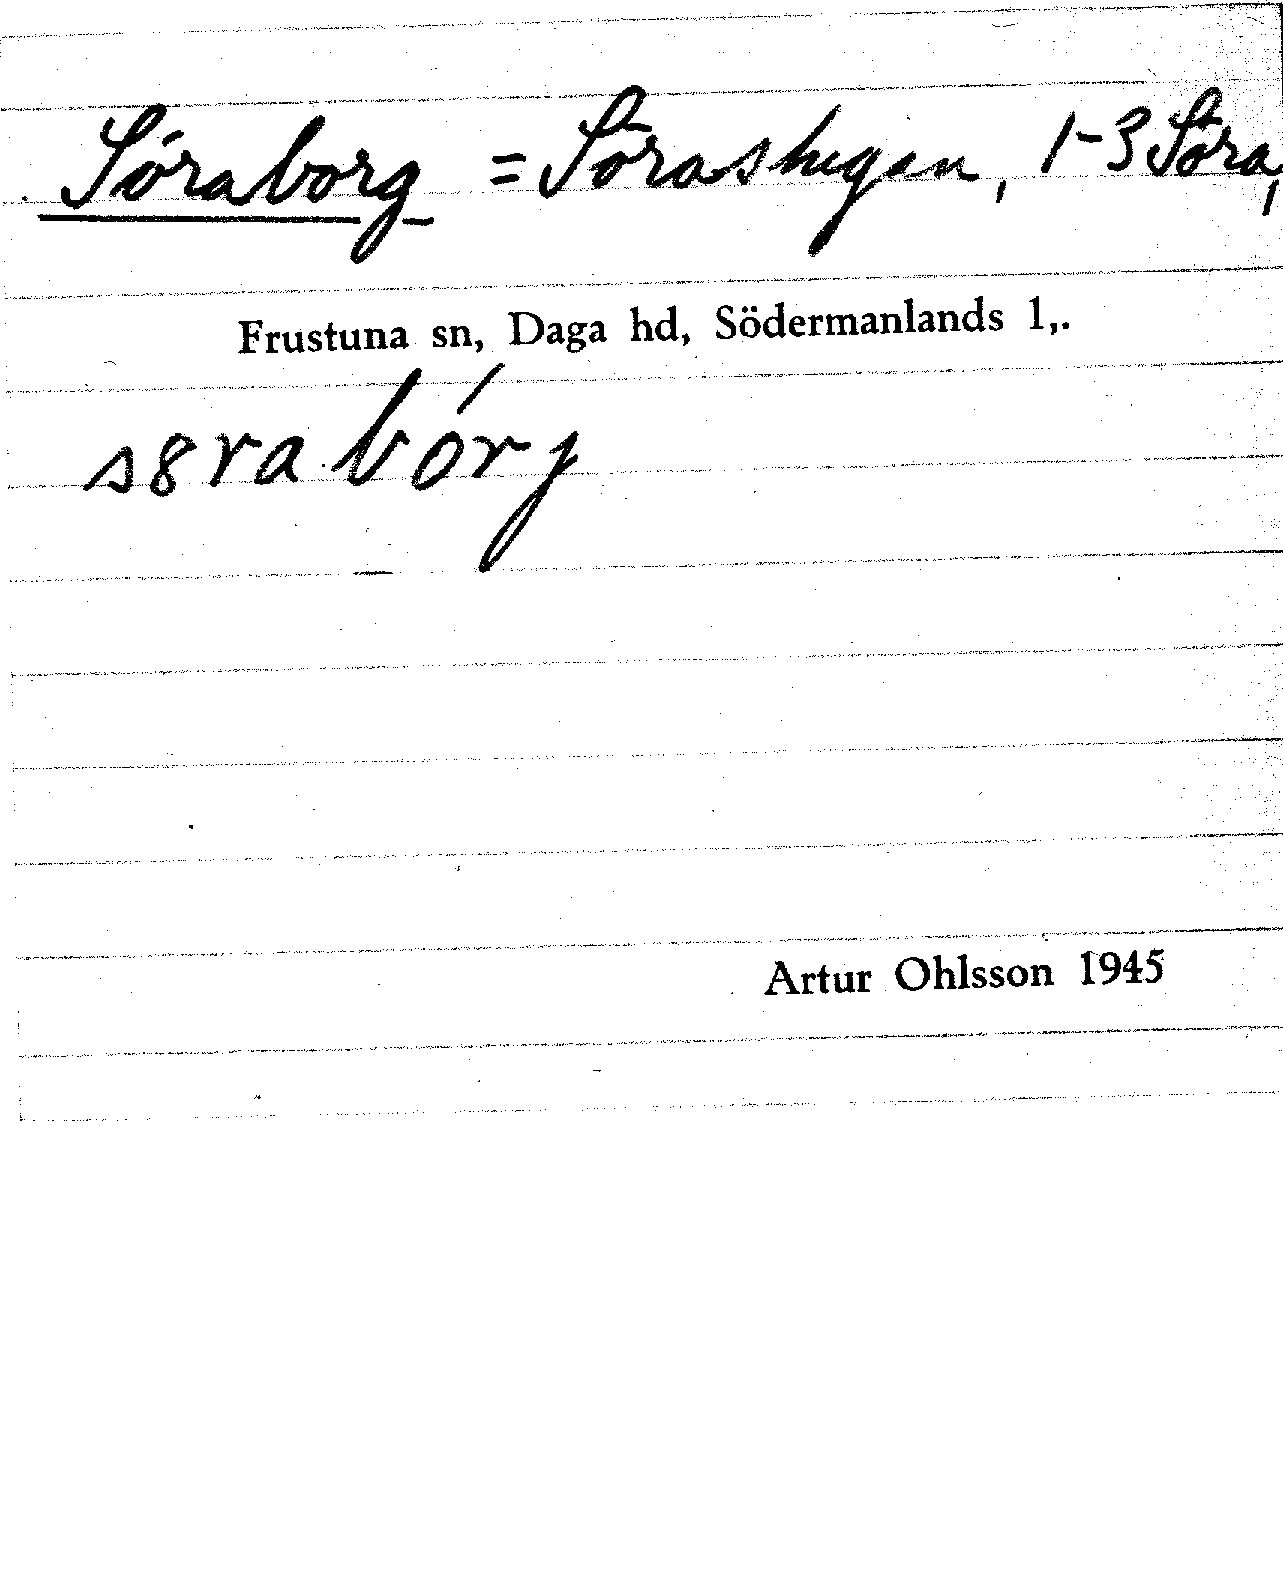 Söraborg = Sörastugan, 1-3 Söra,
Frustuna sn, Daga hd, Södermanlands l,.
s8rabórj
Artur Ohlsson 1945